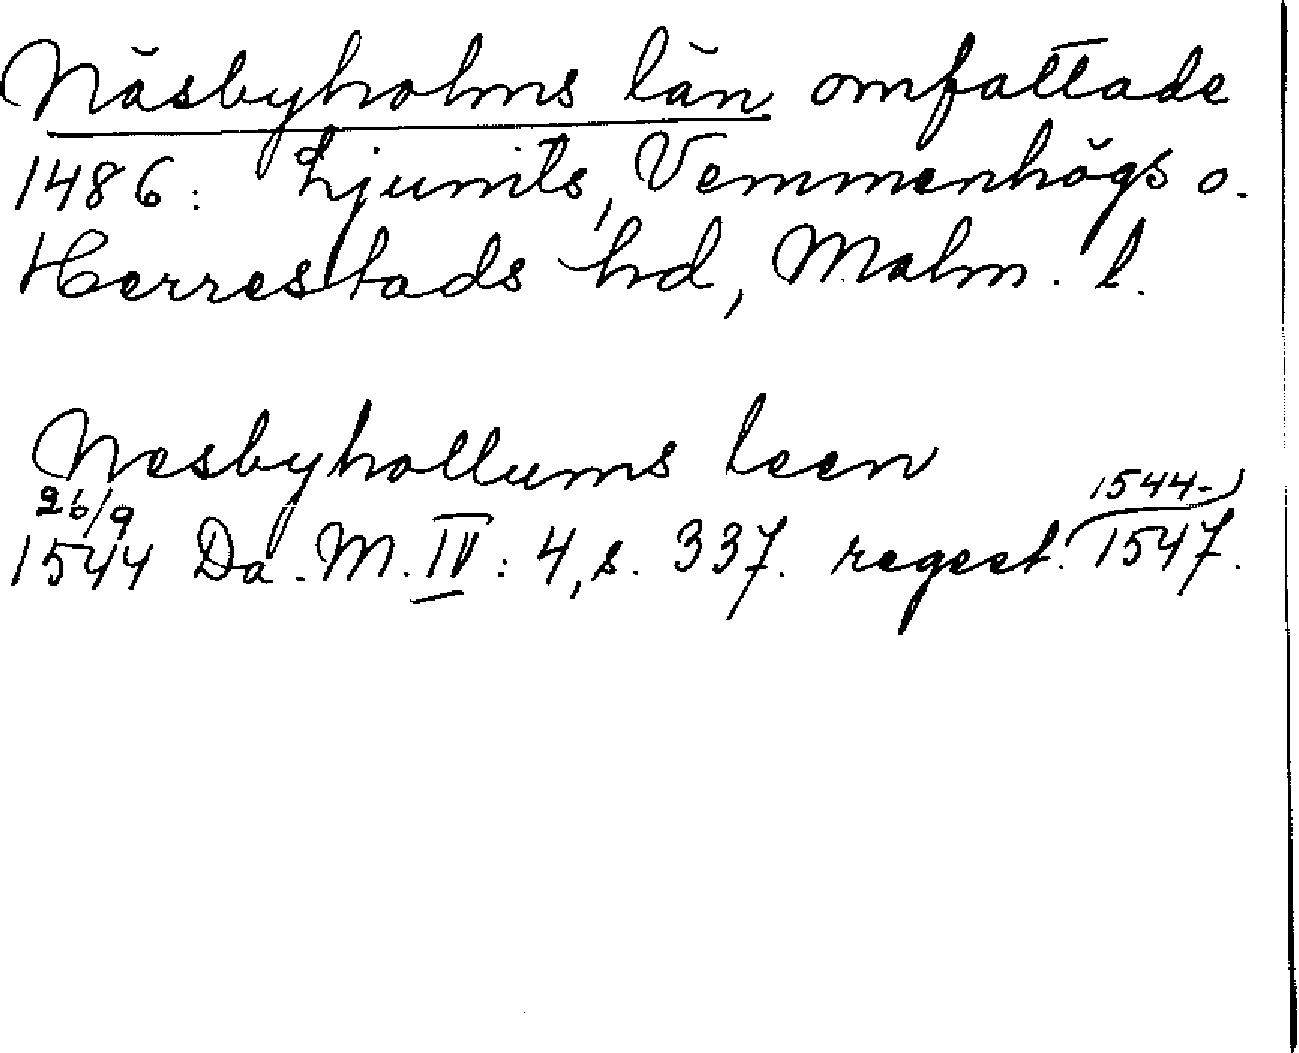 Näsbyholms län omfattade
1486: Ljunits, Vemmenhögs o.
Herrestads hd, Malm. l.
Nesbyhollums leen
26/9 1544-
1544 Da. M. IV: 4, s. 337. regest. 1547.